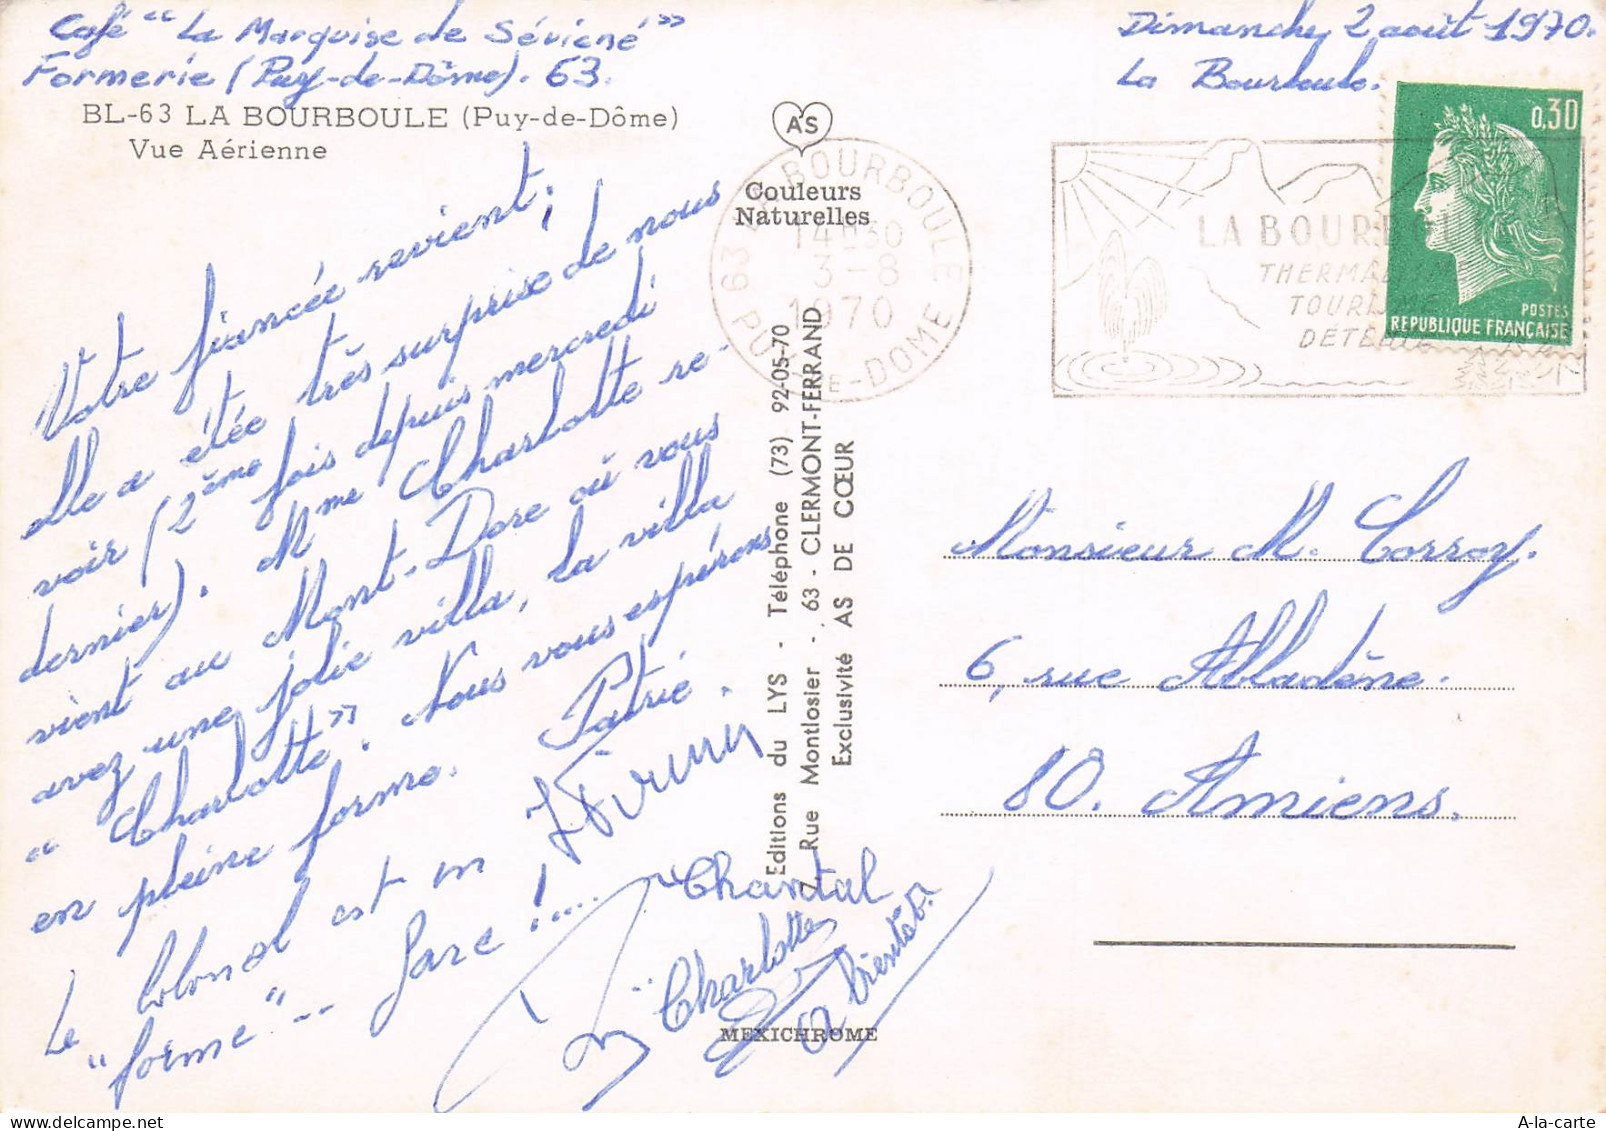 Café "La Marquise de Séviené"
Formerie (Puy-de-Dôme). 63.
Dimanche 2 août 1970.
La Bourboule.
BL-63 LA BOURBOULE (Puy-de-Dôme)
Vue Aérienne
Votre fiancée revient;
elle a étée très surprise de nous
voir (2ème fois depuis mercredi
dernier). Mme Charlotte re-
vient au Mont-Dore où vous
avez une jolie villa, la villa
"Charlotte". Nous vous espérons
en pleine forme. Patrie.
Le Colonel est en
"forme"... Gare !....
Chantal
Charlotte
a bientôt.
AS
Couleurs
Naturelles
Editions du LYS - Téléphone (73) 92-05-70
7, Rue Montlosier - 63 - CLERMONT-FERRAND
Exclusivité AS DE CŒUR
MEXICHROME
63 LA BOURBOULE
14H30
3-8
1970
PUY-DE-DOME
LA BOURBOULE
THERMALISME
TOURISME
DÉTENTE
0,30
POSTES
REPUBLIQUE FRANÇAISE
Monsieur M. Corroy.
6, rue Alladène.
80. Amiens.
A-la-carte